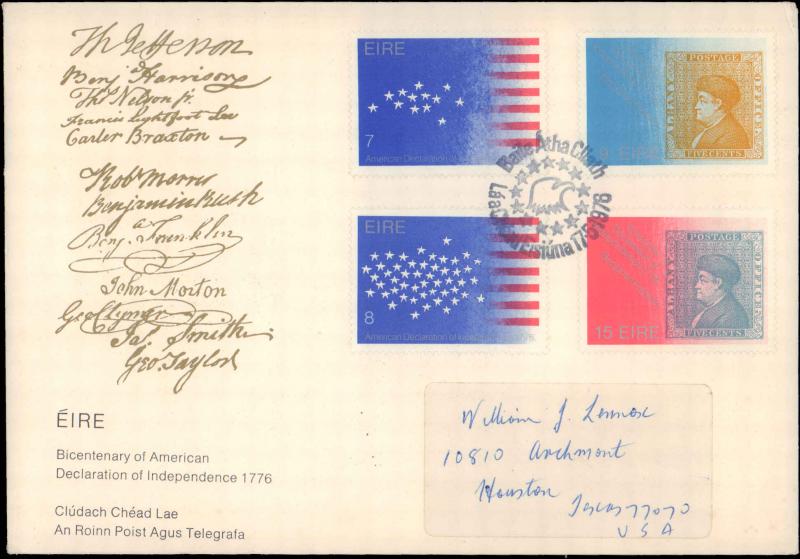 Th Jefferson
Benj Harrison
Thos Nelson jr.
Francis Lightfoot Lee
Carter Braxton
Robt Morris
Benjamin Rush
Benj. Franklin
John Morton
Geo Clymer
Jas. Smith
Geo. Taylor
ÉIRE
Bicentenary of American
Declaration of Independence 1776
Clúdach Chéad Lae
An Roinn Poist Agus Telegrafa
ÉIRE
7
American Declaration of
9 EIRE
POSTAGE
ALBANY
OFFICE
FIVE CENTS
Baile Átha Cliath
Lá an Chéad Eisiúna 17.5.1976
ÉIRE
8
American Declaration of
15 EIRE
POSTAGE
ALBANY
OFFICE
FIVE CENTS
William J. Lennox
10810 Archmont
Houston
Texas 77070
USA